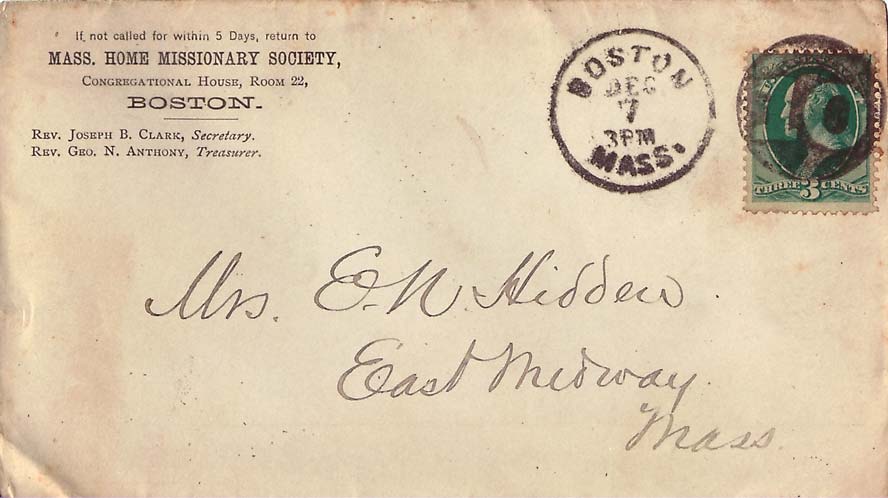 If not called for within 5 Days, return to
MASS. HOME MISSIONARY SOCIETY,
CONGREGATIONAL HOUSE, ROOM 22,
BOSTON.
REV. JOSEPH B. CLARK, Secretary.
REV. GEO. N. ANTHONY, Treasurer.
BOSTON
DEC
7
3PM
MASS.
THREE 3 CENTS
Mrs. E. N. Hidden
East Medway
Mass.